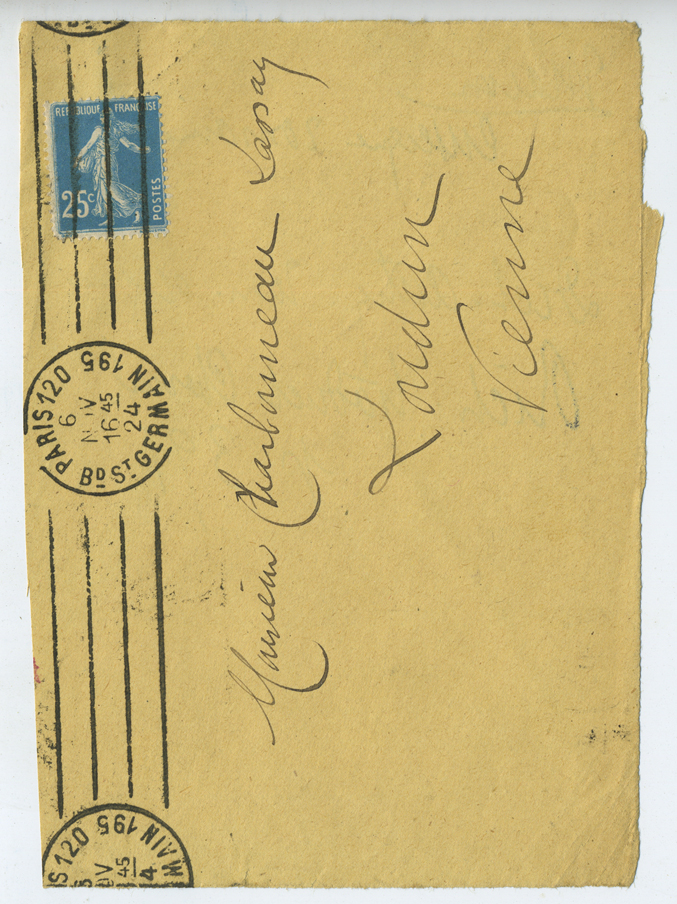 REPUBLIQUE FRANÇAISE
25c
POSTES
PARIS 120
195
6
NOV
16 45
24
BD ST GERMAIN
Monsieur Charbonneau Lassay
Loudun
Vienne
IS 120
195
OV
45
4
MAIN